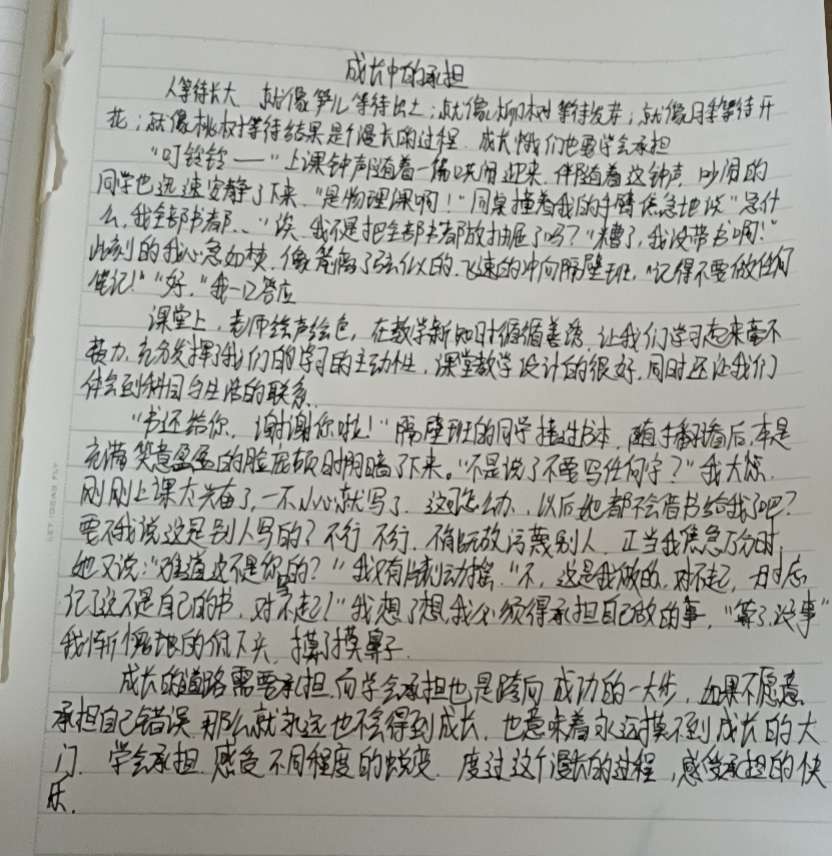 成长中的承担
人等待长大 就像笋儿等待出土；就像柳树等待发芽；就像月季等待开
花；就像桃树等待结果是个漫长的过程. 成长中我们也要学会承担
"叮铃铃——"上课钟声随着一阵哄闹迎来. 伴随着这钟声. 吵闹的
同学也迅速安静了下来. "是物理课啊！"同桌撞着我的手臂焦急地说"急什
么, 我全部书都…""诶. 我不是把全部书都放抽屉了吗？""糟了, 我没带书啊!"
此刻的我心急如焚. 像箭离了弦似的. 飞速的冲向隔壁班. "记得不要做任何
笔记!""好."我一口答应
课堂上, 老师绘声绘色, 在教学新知时循循善诱. 让我们学习起来毫不
费力. 充分发挥了我们的学习的主动性. 课堂教学设计的很好. 同时还让我们
体会到科目与生活的联系.
"书还给你. 谢谢你啦!"隔壁班的同学接过书本. 随手翻看后, 本是
充满笑意盈盈的脸庞顿时阴暗了下来。"不是说了不要写任何字？"我大惊.
刚刚上课太兴奋了, 一不小心就写了. 这可怎么办. 以后她都不会借书给我了吧？
要不我说这是别人写的？不行 不行. 不能污蔑别人. 正当我焦急万分时,
她又说："难道这不是你写的？"我没有片刻动摇. "不, 这是我做的. 对不起, 一时忘
记了这不是自己的书. 对不起!"我想了想, 我必须得承担自己做的事. "算了, 没事"
我惭愧地的低下头. 摸了摸鼻子.
成长的道路需要承担. 而学会承担也是跨向成功的一大步, 如果不愿意
承担自己错误 那么就永远也不会得到成长. 也意味着永远摸不到成长的大
门. 学会承担. 感受不同程度的蜕变. 度过这个漫长的过程, 感受承担的快
乐.